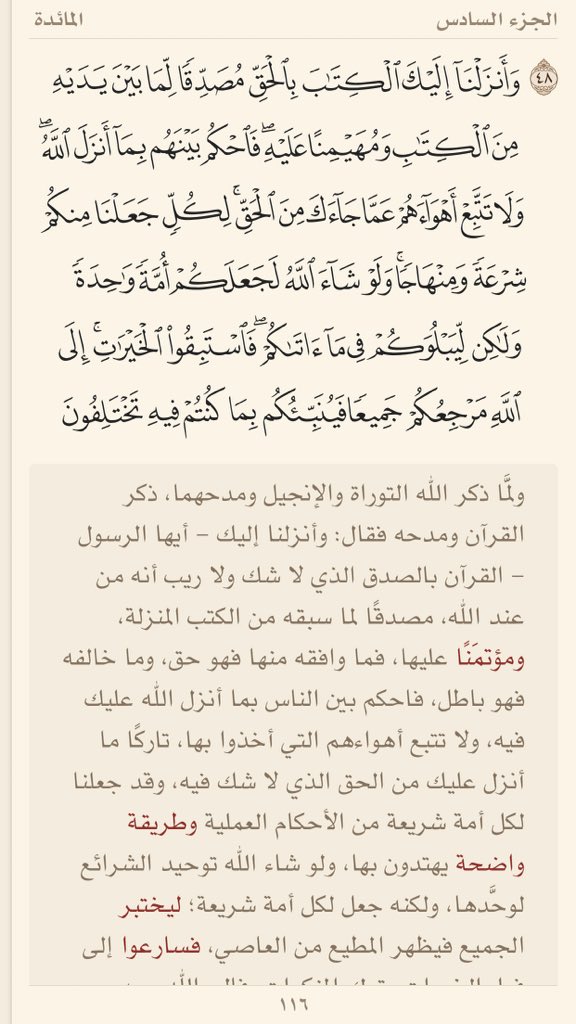 الجزء السادس
المائدة
٤٨
وَأَنزَلْنَآ إِلَيْكَ ٱلْكِتَٰبَ بِٱلْحَقِّ مُصَدِّقًا لِّمَا بَيْنَ يَدَيْهِ
مِنَ ٱلْكِتَٰبِ وَمُهَيْمِنًا عَلَيْهِۖ فَٱحْكُم بَيْنَهُم بِمَآ أَنزَلَ ٱللَّهُۖ
وَلَا تَتَّبِعْ أَهْوَآءَهُمْ عَمَّا جَآءَكَ مِنَ ٱلْحَقِّۚ لِكُلٍّ جَعَلْنَا مِنكُمْ
شِرْعَةً وَمِنْهَاجًاۚ وَلَوْ شَآءَ ٱللَّهُ لَجَعَلَكُمْ أُمَّةً وَٰحِدَةً
وَلَٰكِن لِّيَبْلُوَكُمْ فِى مَآ ءَاتَىٰكُمْۖ فَٱسْتَبِقُوا۟ ٱلْخَيْرَٰتِۚ إِلَى
ٱللَّهِ مَرْجِعُكُمْ جَمِيعًا فَيُنَبِّئُكُم بِمَا كُنتُمْ فِيهِ تَخْتَلِفُونَ
ولمَّا ذكر الله التوراة والإنجيل ومدحهما، ذكر
القرآن ومدحه فقال: وأنزلنا إليك – أيها الرسول
– القرآن بالصدق الذي لا شك ولا ريب أنه من
عند الله، مصدقًا لما سبقه من الكتب المنزلة،
ومؤتمَنًا عليها، فما وافقه منها فهو حق، وما خالفه
فهو باطل، فاحكم بين الناس بما أنزل الله عليك
فيه، ولا تتبع أهواءهم التي أخذوا بها، تاركًا ما
أنزل عليك من الحق الذي لا شك فيه، وقد جعلنا
لكل أمة شريعة من الأحكام العملية وطريقة
واضحة يهتدون بها، ولو شاء الله توحيد الشرائع
لوحَّدها، ولكنه جعل لكل أمة شريعة؛ ليختبر
الجميع فيظهر المطيع من العاصي، فسارعوا إلى
١١٦